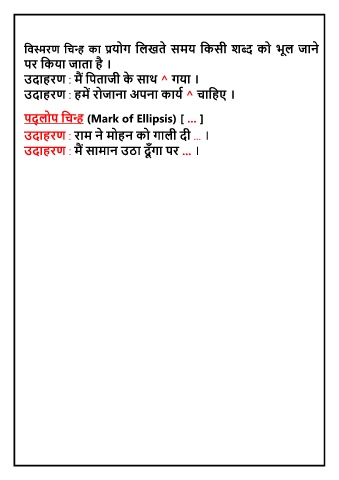 विस्मरण चिन्ह का प्रयोग लिखते समय किसी शब्द को भूल जाने
पर किया जाता है ।
उदाहरण : मैं पिताजी के साथ ^ गया ।
उदाहरण : हमें रोजाना अपना कार्य ^ चाहिए ।
पद्लोप चिन्ह (Mark of Ellipsis) [ ... ]
उदाहरण : राम ने मोहन को गाली दी ... ।
उदाहरण : मैं सामान उठा दूँगा पर ... ।